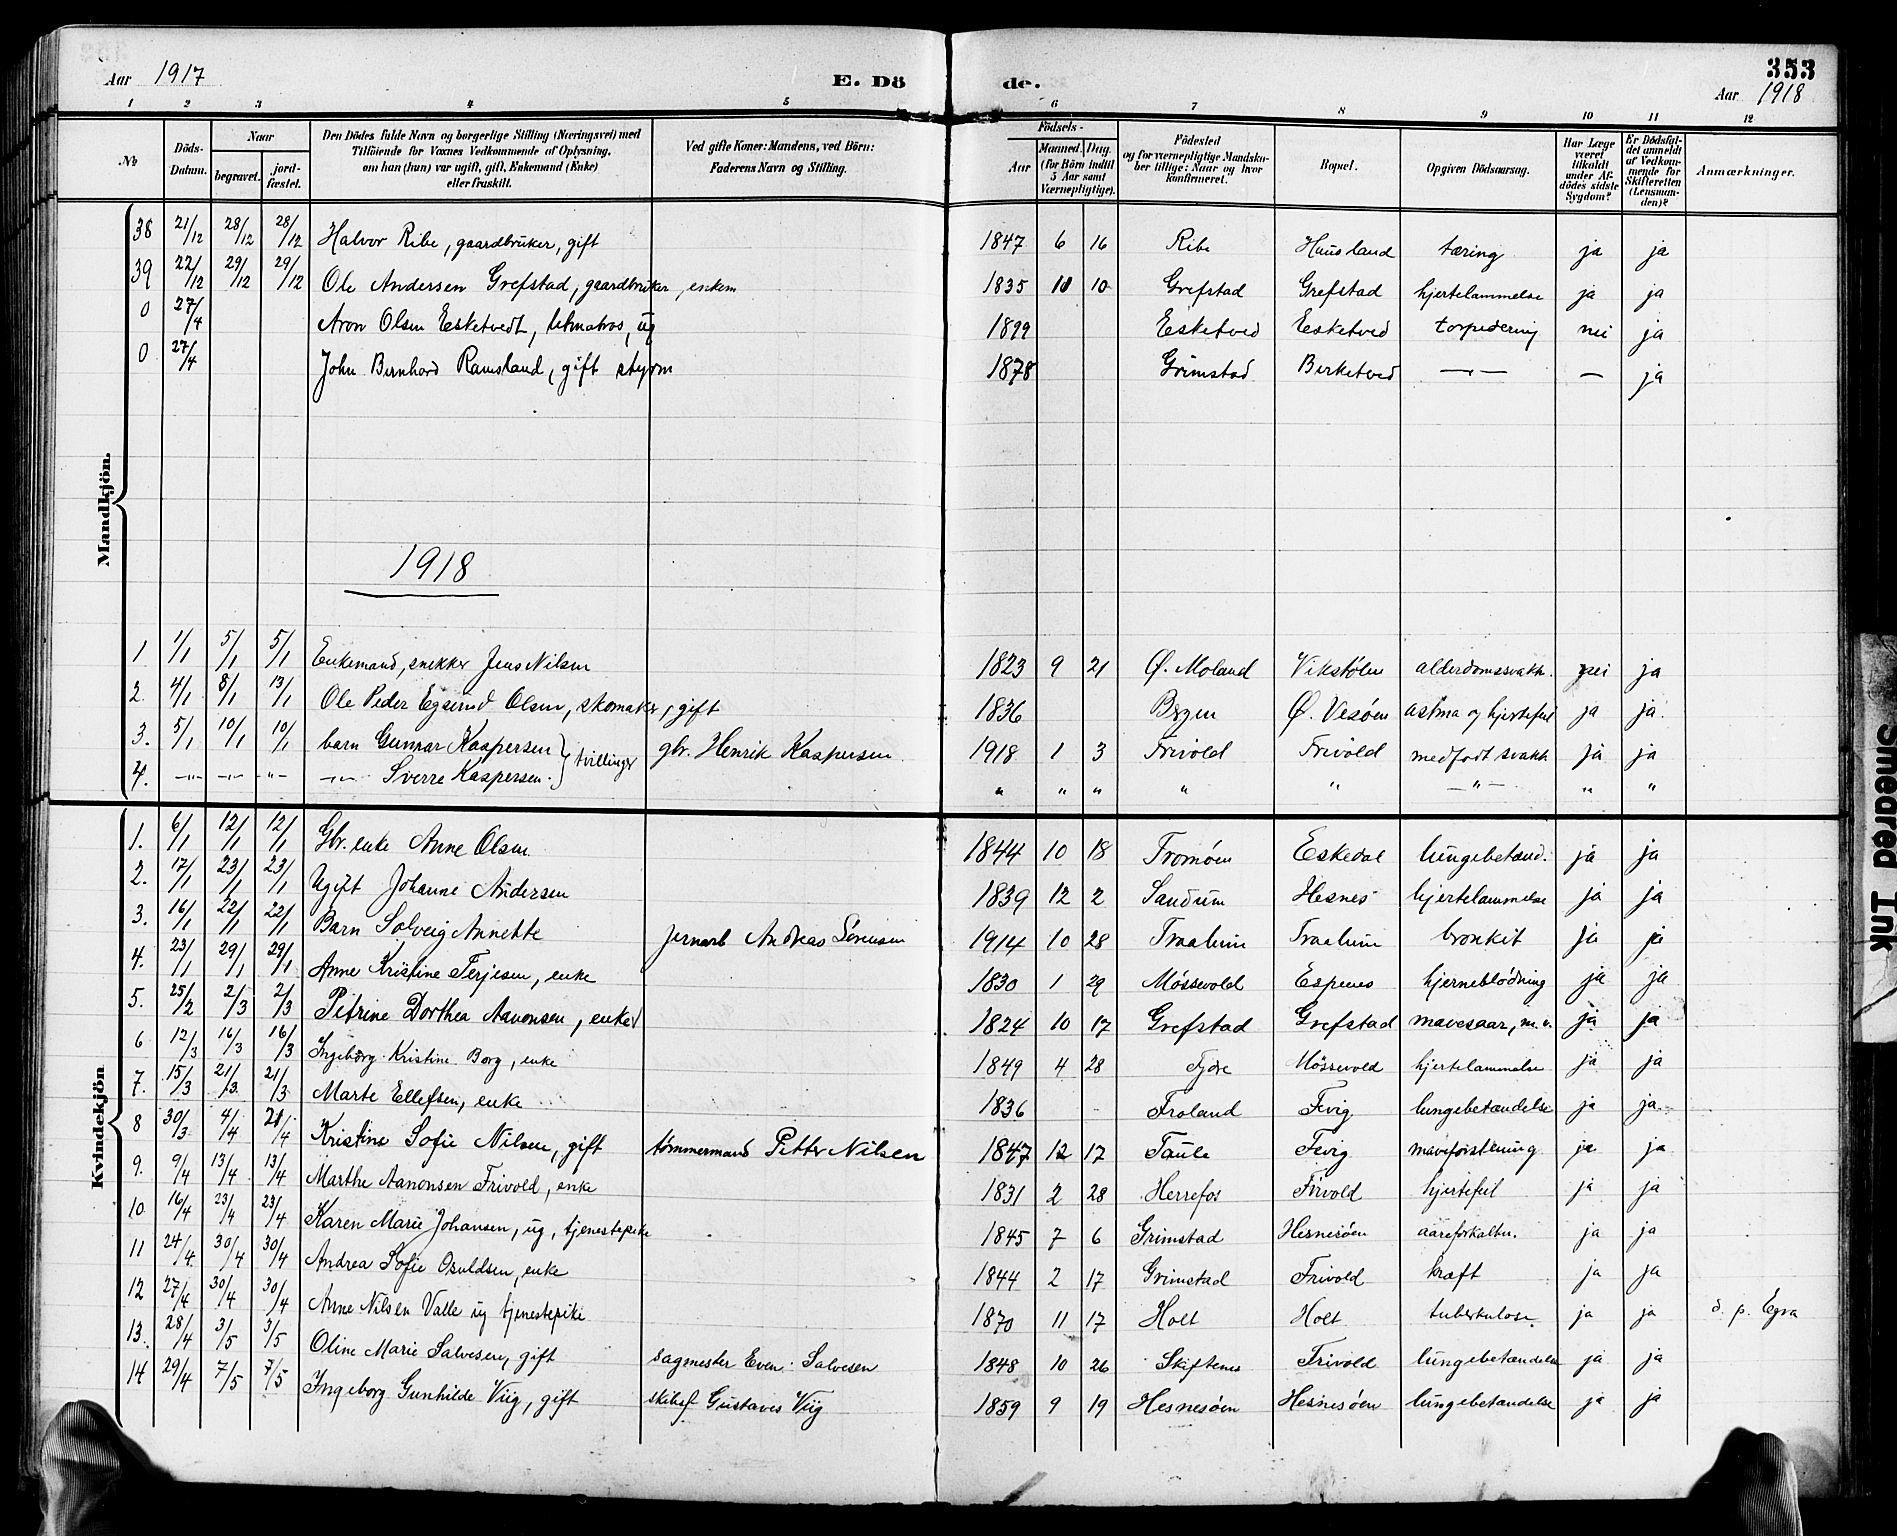 Aar 1917 E. Dö de. 353
Aar 1918
1 2 3 4 5 6 7 8 9 10 11 12
No
Döds-Datum.
Naar
begravet. jord-fæstet.
Den Dödes fulde Navn og borgerlige Stilling (Næringsvei) med
Tilföiende for Voxnes Vedkommende af Oplysning,
om han (hun) var ugift, gift, Enkemand (Enke)
eller fraskilt.
Ved gifte Koner: Mandens, ved Börn:
Faderens Navn og Stilling.
Födsels-
Aar Maaned. Dag.
(for Börn indtil
5 Aar samt
Værnepligtige).
Födested
og for værnepligtige Mandska-
ber tillige: Naar og hvor
konfirmeret.
Bopæl.
Opgiven Dödsaarsag.
Har Læge
været
tilkaldt
under Af-
dödes sidste
Sygdom?
Er Dödsfal-
det anmeldt
af Vedkom-
mende for
Skifteretten
(Lensman-
den)?
Anmærkninger.
Mandkjön.
38 21/12 28/12 28/12 Halvor Ribe, gaardbruker, gift 1847 6 16 Ribe Huusland tæring ja ja
39 22/12 29/12 29/12 Ole Andersen Grefstad, gaardbruker, enkem 1835 11 10 Grefstad Grefstad hjertelammelse ja ja
0 27/4 Aron Olsen Esketvedt, letmatros, ug 1899 Esketved Esketved torpedering nei ja
0 27/4 John Bernhard Ramsland, gift styrm 1878 Grimstad Birketved —"— — ja
1918
1 1/1 5/1 5/1 Enkemand, snekker Jens Nilsen 1823 9 21 Ø. Moland Vikstölen alderdomssvakh. nei ja
2. 4/1 8/1 13/1 Ole Peder Egerund Olsen, skomaker, gift 1836 Bergen Ø. Vesöen astma og hjertefeil ja ja.
3. 5/1 10/1 10/1 barn Gunnar Kaspersen } tvillinger gbr. Henrik Kaspersen. 1918 1 3 Frivold Frivold medfödt svakh ja ja
4. —"— —"— "— —"— Sverre Kaspersen. " " " " " —"— " "
Kvindekjön
1. 6/1 12/1 12/1 Gbr. enke Anne Olsen 1844 10 18 Tromöen Eskedal lungebetænd. ja ja
2. 17/1 23/1 23/1 Ugift Johanne Andersen 1839 12 2 Sandum Hesnes hjertelammelse ja ja
3. 16/1 22/1 22/1 Barn Solveig Annette jernarb Andreas Sörensen 1914 10 28 Traalum Traalum bronkit ja ja
4. 23/1 29/1 29/1 Anne Kristine Terjesen, enke 1830 1 29 Mössevold Espenes hjerneblödning ja ja
5. 25/2 2/3 2/3 Petrine Dorthea Aanonsen, enke 1824 10 17 Grefstad Grefstad mavesaar, m.v. ja ja
6 12/3 16/3 16/3 Ingeborg Kristine Borg, enke 1849 4 28 Fjære Mössevold hjertelammelse ja ja
7. 15/3 21/3 21/3 Marte Ellefsen, enke 1836 Froland Fevig lungebetændelse ja ja.
8 30/3 4/4 21/4 Kristine Sofie Nilsen, gift tömmermand Petter Nilsen 1847 12 17 Taule Fevig maveforstening ja ja
9. 9/4 13/4 13/4 Marthe Aanonsen Frivold, enke 1831 2 28 Herrefos Frivold hjertefeil ja ja
10 16/4 23/4 23/4 Karen Marie Johansen, ug, tjenestepike 1845 7 6 Grimstad Hesnesöen aareforkalkn. ja ja
11 24/4 30/4 30/4 Andrea Sofie Osuldsen, enke 1844 2 17 Grimstad Frivold kræft ja ja
12 27/4 30/4 30/4 Anne Nilsen Valle ug tjenestepike 1870 11 17 Holt Holt tuberkulose. ja ja d. p. Egra
13. 28/4 3/5 3/5 Oline Marie Salvesen, gift sagmester Even Salvesen 1848 10 26 Skiftenes Frivold lungebetændelse ja ja
14 29/4 7/5 7/5 Ingeborg Gunhilde Viig, gift skibsf. Gustaves Viig 1859 9 19 Hesnesöen Hesnesöen lungebetændelse ja ja
Smeared Ink